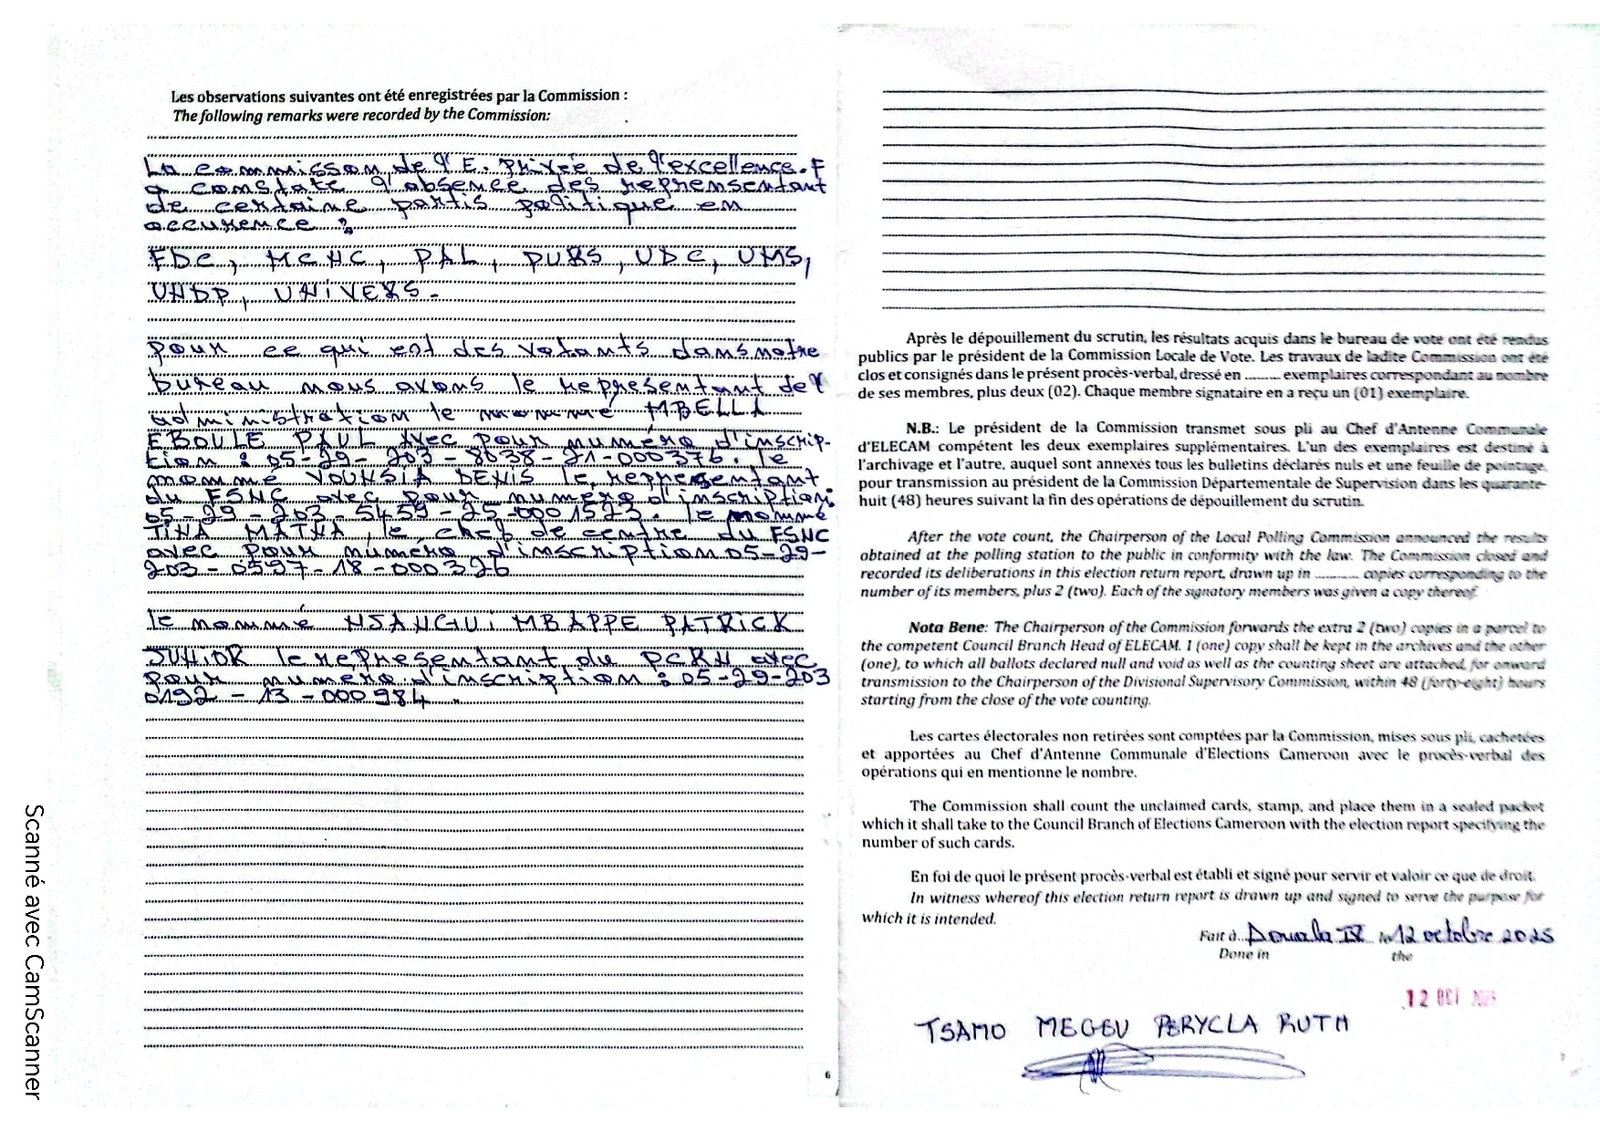 Les observations suivantes ont été enregistrées par la Commission :
The following remarks were recorded by the Commission:
La commission de l'E. Privée de l'excellence.F
a constate l'absence des reprensentant
de certaine partis politique en
occurence :
FDC, MCNC, PAL, PURS, UDC, UMS,
UNDP, UNIVERS.
pour ce qui est des votants dans notre
bureau nous avons le representant de l'
administration le nommé MBELLA
EBOULE PAUL avec pour numéro d'inscrip-
tion : 05-29-203-8038-21-000376. le
nommé YOUNSIA DENIS le representant
du FSNC avec pour numero d'inscription:
05-29-203-5459-25-0001523. le nommé
TINA MATNA, le chef de centre du FSNC
avec pour numéro d'inscription 05-29-
203-0597-18-000326
le nommé NSANGUI MBAPPE PATRICK
JUNIOR le representant du PCRN avec
pour numéro d'inscription : 05-29-203
0192-13-000984.
6
Après le dépouillement du scrutin, les résultats acquis dans le bureau de vote ont été rendus
publics par le président de la Commission Locale de Vote. Les travaux de ladite Commission ont été
clos et consignés dans le présent procès-verbal, dressé en .......... exemplaires correspondant au nombre
de ses membres, plus deux (02). Chaque membre signataire en a reçu un (01) exemplaire.
N.B.: Le président de la Commission transmet sous pli au Chef d'Antenne Communale
d'ELECAM compétent les deux exemplaires supplémentaires. L'un des exemplaires est destiné à
l'archivage et l'autre, auquel sont annexés tous les bulletins déclarés nuls et une feuille de pointage,
pour transmission au président de la Commission Départementale de Supervision dans les quarante-
huit (48) heures suivant la fin des opérations de dépouillement du scrutin.
After the vote count, the Chairperson of the Local Polling Commission announced the results
obtained at the polling station to the public in conformity with the law. The Commission closed and
recorded its deliberations in this election return report, drawn up in ............ copies corresponding to the
number of its members, plus 2 (two). Each of the signatory members was given a copy thereof.
Nota Bene: The Chairperson of the Commission forwards the extra 2 (two) copies in a parcel to
the competent Council Branch Head of ELECAM. 1 (one) copy shall be kept in the archives and the other
(one), to which all ballots declared null and void as well as the counting sheet are attached, for onward
transmission to the Chairperson of the Divisional Supervisory Commission, within 48 (forty-eight) hours
starting from the close of the vote counting.
Les cartes électorales non retirées sont comptées par la Commission, mises sous pli, cachetées
et apportées au Chef d'Antenne Communale d'Elections Cameroon avec le procès-verbal des
opérations qui en mentionne le nombre.
The Commission shall count the unclaimed cards, stamp, and place them in a sealed packet
which it shall take to the Council Branch of Elections Cameroon with the election report specifying the
number of such cards.
En foi de quoi le présent procès-verbal est établi et signé pour servir et valoir ce que de droit.
In witness whereof this election return report is drawn up and signed to serve the purpose for
which it is intended.
Fait à Douala IV le 12 octobre 2025
Done in the
12 OCT 2025
TSAMO MEGEU PERYCLA RUTH
Scanné avec CamScanner